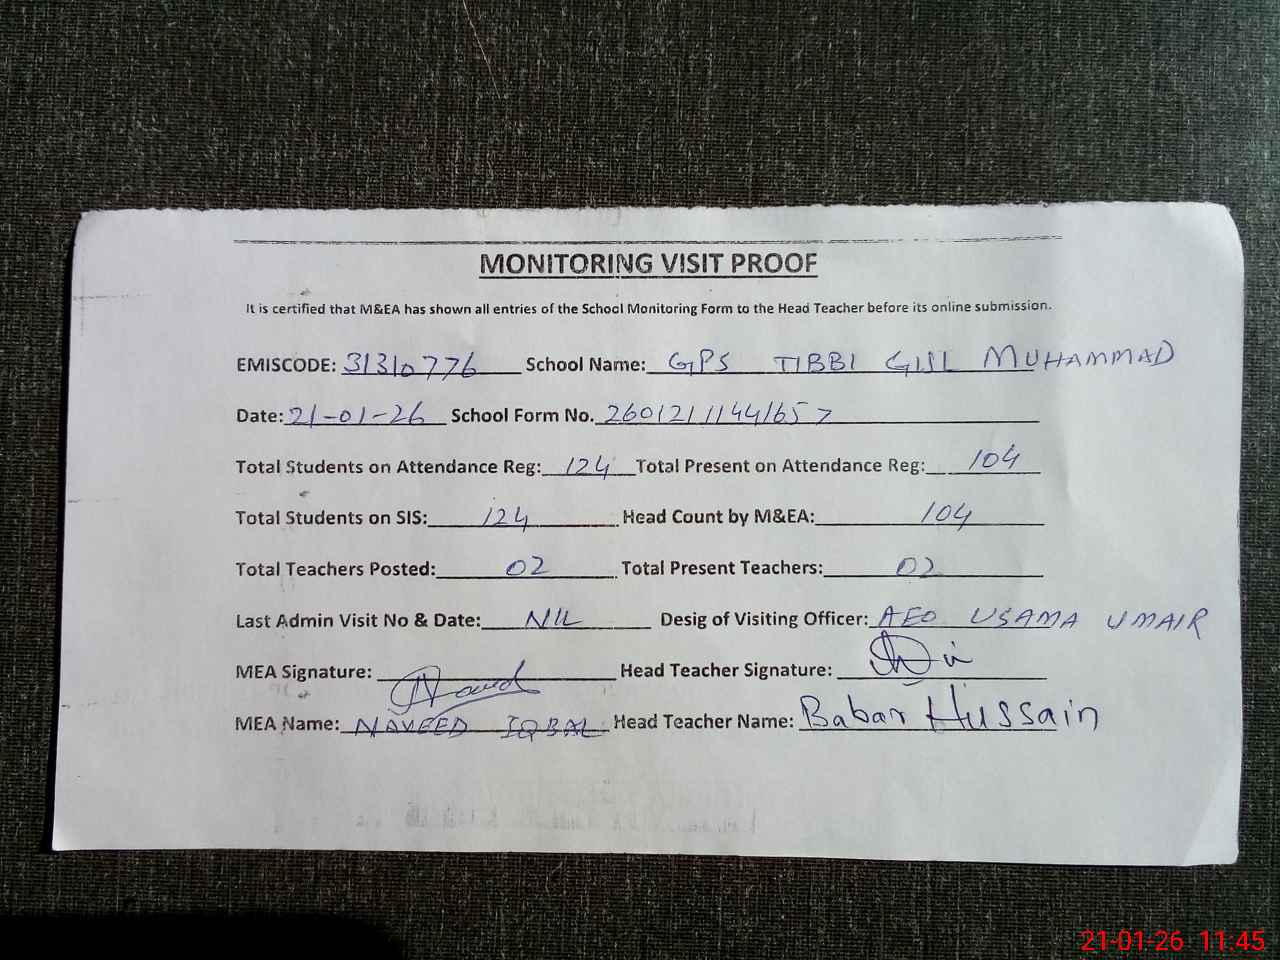 MONITORING VISIT PROOF
It is certified that M&EA has shown all entries of the School Monitoring Form to the Head Teacher before its online submission.
EMISCODE: 31310776 School Name: GPS TIBBI GUL MUHAMMAD
Date: 21-01-26 School Form No. 26012111441657
Total Students on Attendance Reg: 124 Total Present on Attendance Reg: 104
Total Students on SIS: 124 Head Count by M&EA: 104
Total Teachers Posted: 02 Total Present Teachers: 02
Last Admin Visit No & Date: NIL Desig of Visiting Officer: AEO USAMA UMAIR
MEA Signature: Naveed Head Teacher Signature:
MEA Name: NAVEED IQBAL Head Teacher Name: Babar Hussain
21-01-26 11:45